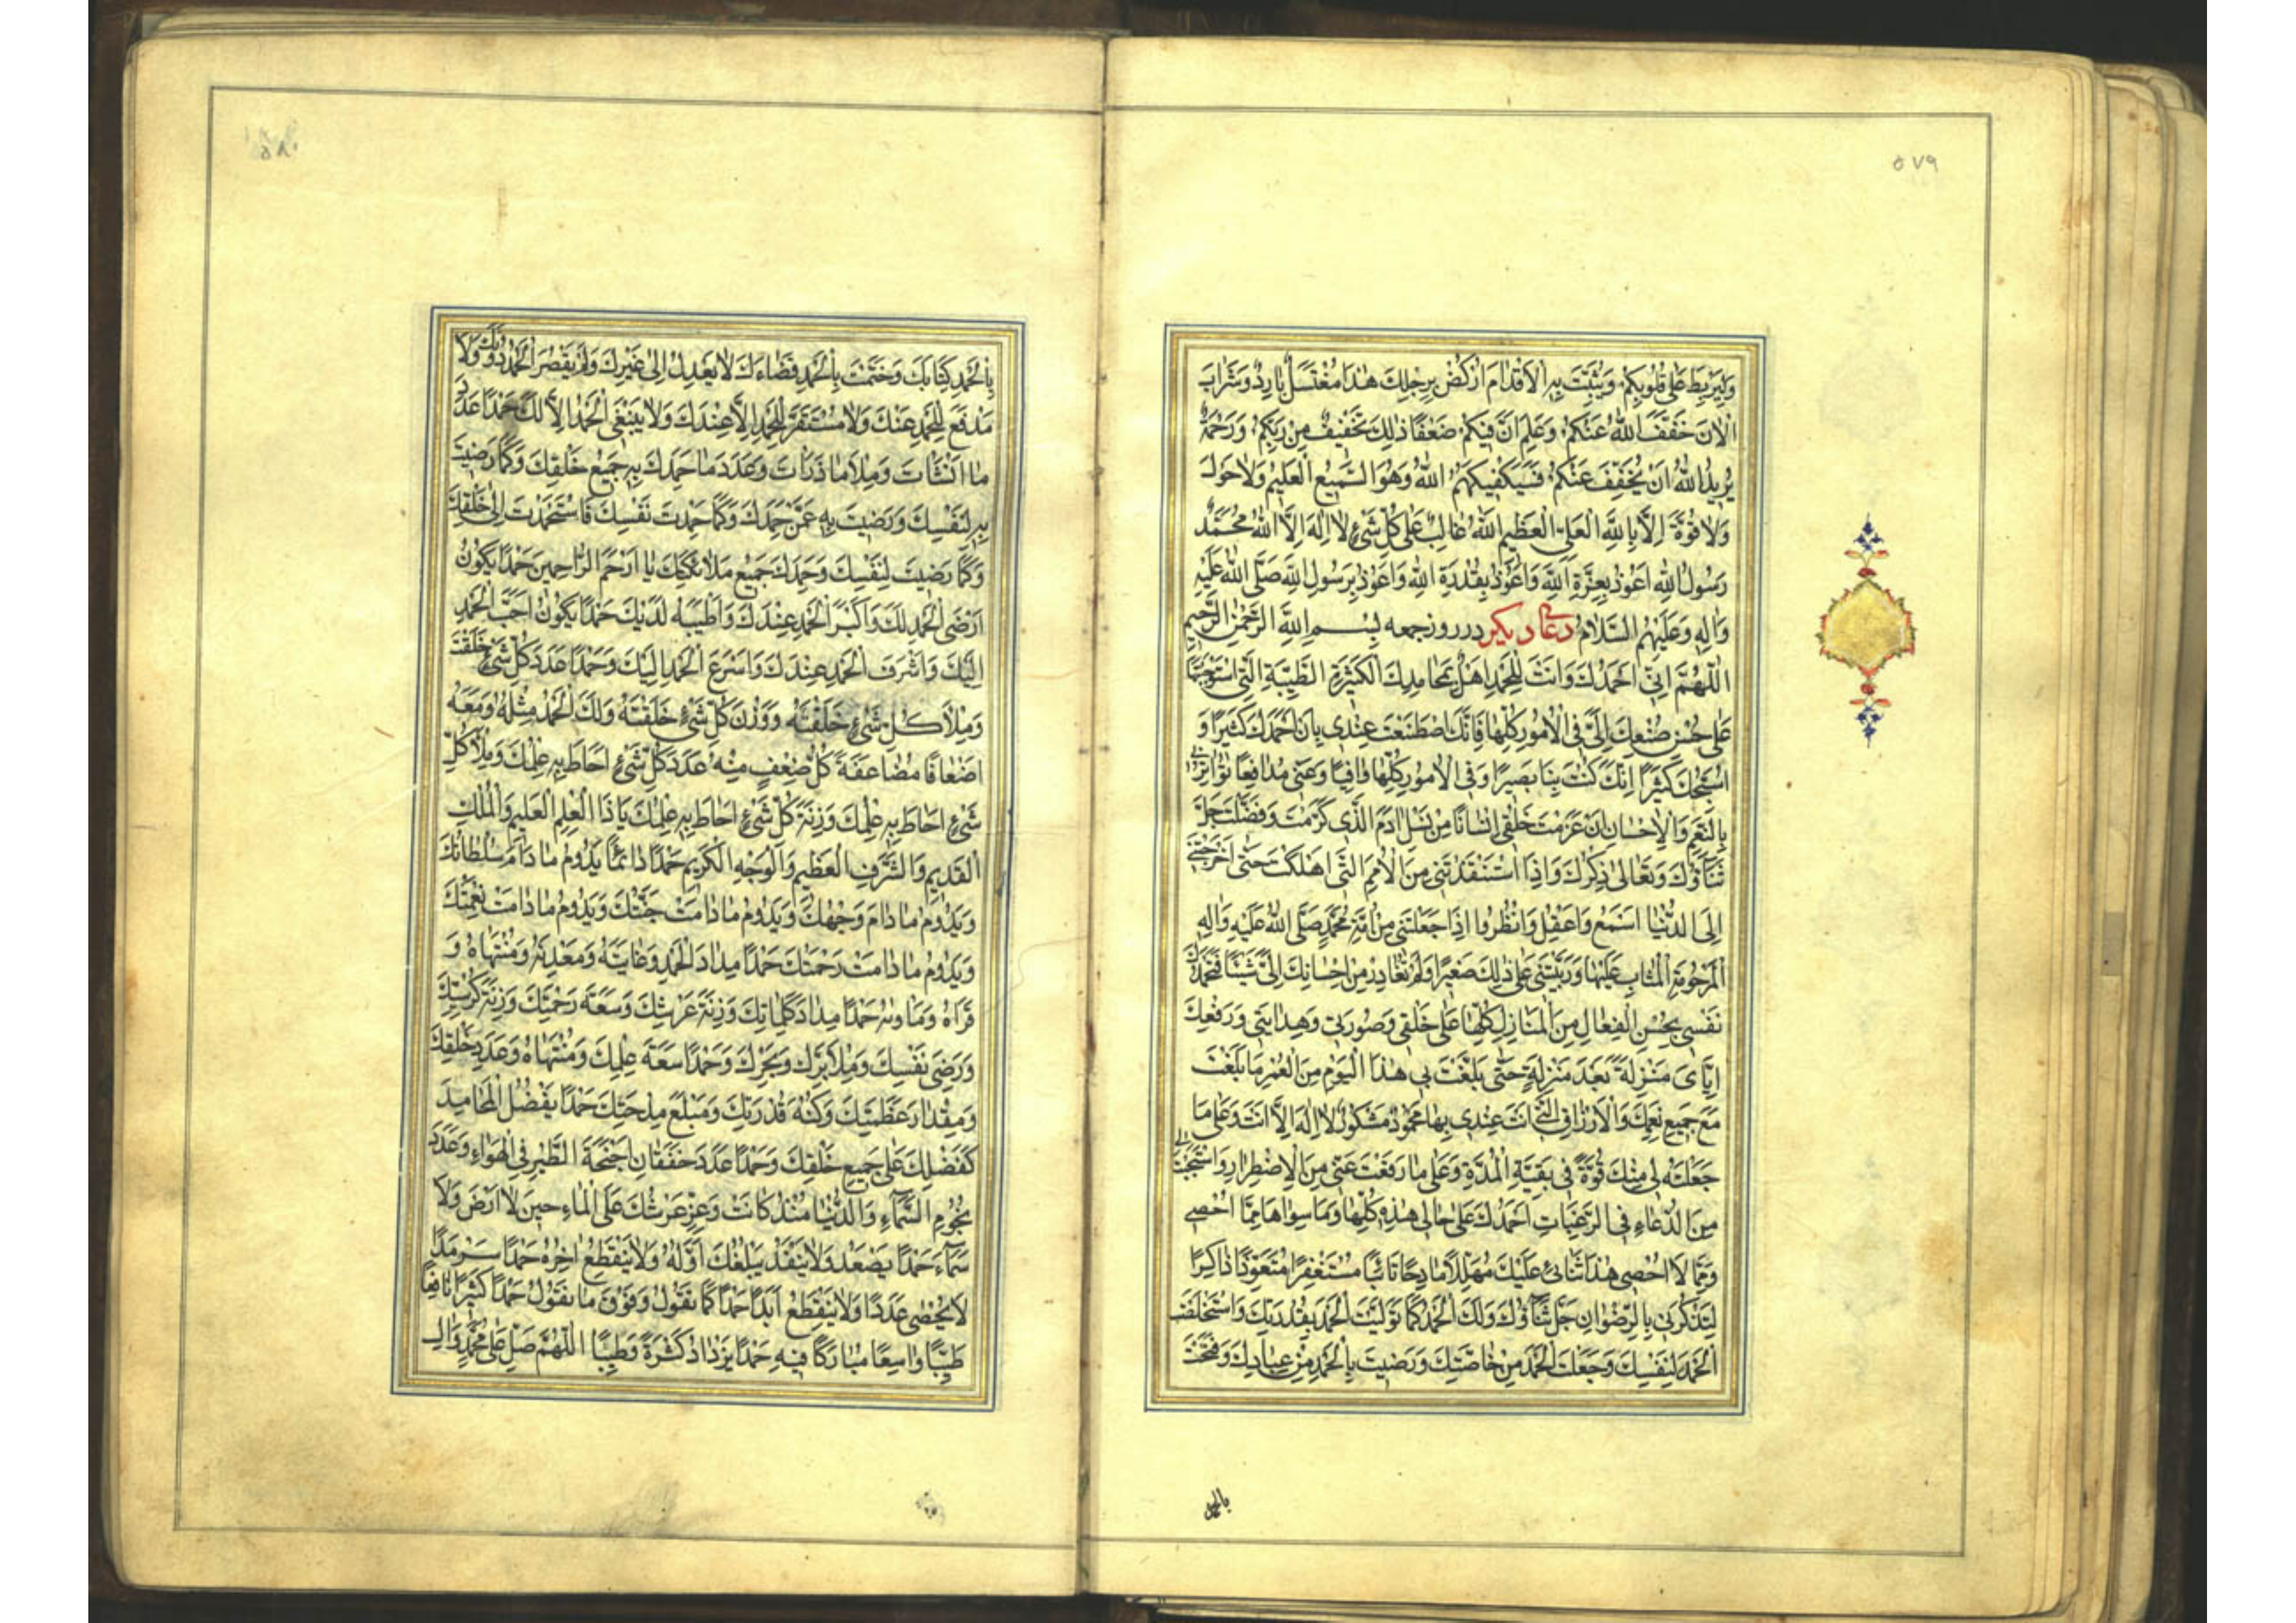 ٥٧٩
وَلِيَرْبِطَ عَلىٰ قُلُوبِكُمْ وَيُثَبِّتَ بِهِ الْاَقْدامَ اُرْكُضْ بِرِجْلِكَ هٰذا مُغْتَسَلٌ بارِدٌ وَشَرابٌ
اَلْاٰنَ خَفَّفَ اللهُ عَنْكُمْ وَعَلِمَ اَنَّ فيكُمْ ضَعْفًا ذٰلِكَ تَخْفيفٌ مِنْ رَبِّكُمْ وَرَحْمَةٌ
يُريدُ اللهُ اَنْ يُخَفِّفَ عَنْكُمْ فَسَيَكْفيكَهُمُ اللهُ وَهُوَ السَّميعُ الْعَليمُ وَلا حَوْلَ
وَلا قُوَّةَ اِلّا بِاللهِ الْعَلِيِّ الْعَظيمِ اَللهُ غالِبٌ عَلىٰ كُلِّ شَيْءٍ لا اِلٰهَ اِلَّا اللهُ مُحَمَّدٌ
رَسُولُ اللهِ اَعُوذُ بِعِزَّةِ اللهِ وَاَعُوذُ بِقُدْرَةِ اللهِ وَاَعُوذُ بِرَسُولِ اللهِ صَلَّى اللهُ عَلَيْهِ
وَاٰلِهِ وَعَلَيْهِمُ السَّلامُ دعاى ديكر در روز جمعه بِسْمِ اللهِ الرَّحْمٰنِ الرَّحيمِ
اَللّٰهُمَّ اِنّى اَحْمَدُكَ وَاَنْتَ لِلْحَمْدِ اَهْلٌ بِمَحامِدِكَ الْكَثيرَةِ الطَّيِّبَةِ الَّتى اسْتَوْجَبْتَها
عَلىٰ حُسْنِ صُنْعِكَ اِلَىَّ فِى الْاُمُورِ كُلِّها فَاِنَّكَ اصْطَنَعْتَ عِنْدى بِاَنْ اَحْمَدَكَ كَثيرًا وَ
اُسَبِّحَكَ كَثيرًا اِنَّكَ كُنْتَ بِنا بَصيرًا وَفِى الْاُمُورِ كُلِّها واقِيًا وَعَنّى مُدافِعًا تُواتِرُنى
بِالنِّعَمِ وَالْاِحْسانِ اِنْ عَزَمْتَ خَلْقى اِنْسانًا مِنْ نَسْلِ اٰدَمَ الَّذى كَرَّمْتَ وَفَضَّلْتَ جَلَّ
ثَناؤُكَ وَتَعالىٰ ذِكْرُكَ وَاِذَا اسْتَنْقَذْتَنى مِنَ الْاُمَمِ الَّتى اَهْلَكْتَ حَتّىٰ اَخْرَجْتَنى
اِلَى الدُّنْيا اَسْمَعُ وَاَعْقِلُ وَانْظُرُوا اِذا جَعَلْتَنى مِنْ اُمَّةِ مُحَمَّدٍ صَلَّى اللهُ عَلَيْهِ وَاٰلِهِ
الْمَرْحُومَةِ الْمُثابِ عَلَيْها وَرَبَّيْتَنى عَلىٰ ذٰلِكَ صَغيرًا وَلَمْ تُغادِرْ مِنْ اِحْسانِكَ اِلَىَّ شَيْئًا فَتَحْمَدُكَ
نَفْسى بِحُسْنِ الْفِعالِ مِنَ الْمَنازِلِ كُلِّها عَلىٰ خَلْقى وَصُورَتى وَهِدايَتى وَرَفْعِكَ
اِيّاىَ مَنْزِلَةً بَعْدَ مَنْزِلَةٍ حَتّىٰ بَلَّغْتَ بى هٰذَا الْيَوْمَ مِنَ الْعُمْرِ ما بَلَغْتَ
مَعَ جَميعِ نِعَمِكَ وَالْاَرْزاقِ الَّتى اَنْتَ عِنْدى بِها مَحْمُودٌ مَشْكُورٌ لا اِلٰهَ اِلّا اَنْتَ وَعَلىٰ ما
جَعَلْتَهُ لى مِنْكَ قُوَّةً فى بَقِيَّةِ الْمُدَّةِ وَعَلىٰ ما رَفَعْتَ عَنّى مِنَ الْاِضْطِرارِ وَاسْتَجَبْتَ لى
مِنَ الدُّعاءِ فِى الرَّغَباتِ اَحْمَدُكَ عَلىٰ حالى هٰذِهِ كُلِّها وَما سِواها مِمّا اُحْصى
وَمِمّا لا اُحْصى هٰذا ثَنائى عَلَيْكَ مُهَلِّلًا مادِحًا تائِبًا مُسْتَغْفِرًا مُتَعَوِّذًا ذاكِرًا
لِتَذْكُرَنى بِالرِّضْوانِ جَلَّ ثَناؤُكَ وَلَكَ الْحَمْدُ كَما تَوَلَّيْتَ الْحَمْدَ بِقُدْرَتِكَ وَاسْتَخْلَصْتَ
الْحَمْدَ لِنَفْسِكَ وَجَعَلْتَ الْحَمْدَ مِنْ خاصَّتِكَ وَرَضيتَ بِالْحَمْدِ مِنْ عِبادِكَ وَفَتَحْتَ
بالحمد
٥٨٠
بِالْحَمْدِ كِتابَكَ وَخَتَمْتَ بِالْحَمْدِ قَضاءَكَ لا يَعْدِلُ اِلىٰ غَيْرِكَ وَلَمْ يَقْصُرِ الْحَمْدُ دُونَكَ وَلا
مَدْفَعَ لِلْحَمْدِ عَنْكَ وَلا مُسْتَقَرَّ لِلْحَمْدِ اِلّا عِنْدَكَ وَلا يَنْبَغِى الْحَمْدُ اِلّا لَكَ حَمْدًا عَدَدَ
ما اَنْشَأْتَ وَمِلْأَ ما ذَرَأْتَ وَعَدَدَ ما حَمِدَكَ بِهِ جَميعُ خَلْقِكَ وَكَما رَضيتَ
بِهِ لِنَفْسِكَ وَرَضيتَ بِهِ عَمَّنْ حَمِدَكَ وَكَما حَمِدْتَ نَفْسَكَ فَاسْتَحْمَدْتَ اِلىٰ خَلْقِكَ
وَكَما رَضيتَ لِنَفْسِكَ وَحَمِدَكَ جَميعُ مَلائِكَتِكَ يا اَرْحَمَ الرّاحِمينَ حَمْدًا يَكُونُ
اَرْضَى الْحَمْدِ لَكَ وَاَكْبَرَ الْحَمْدِ عِنْدَكَ وَاَطْيَبَهُ لَدَيْكَ حَمْدًا يَكُونُ اَحَبَّ الْحَمْدِ
اِلَيْكَ وَاَشْرَفَ الْحَمْدِ عِنْدَكَ وَاَسْرَعَ الْحَمْدِ اِلَيْكَ وَحَمْدًا عَدَدَ كُلِّ شَىْءٍ خَلَقْتَ
وَمِلْأَ كُلِّ شَىْءٍ خَلَقْتَهُ وَوَزْنَ كُلِّ شَىْءٍ خَلَقْتَهُ وَلَكَ الْحَمْدُ مِثْلُهُ وَمَعَهُ
اَضْعافًا مُضاعَفَةً كُلُّ ضِعْفٍ مِنْهُ عَدَدَ كُلِّ شَىْءٍ اَحاطَ بِهِ عِلْمُكَ وَمِلْأَ كُلِّ
شَىْءٍ اَحاطَ بِهِ عِلْمُكَ وَزِنَةَ كُلِّ شَىْءٍ اَحاطَ بِهِ عِلْمُكَ يا ذَا الْعِلْمِ الْعَليمِ وَالْمُلْكِ
الْقَديمِ وَالشَّرَفِ الْعَظيمِ وَالْوَجْهِ الْكَريمِ حَمْدًا دائِمًا يَدُومُ ما دامَ سُلْطانُكَ
وَيَدُومُ ما دامَ وَجْهُكَ وَيَدُومُ ما دامَتْ جَنَّتُكَ وَيَدُومُ ما دامَتْ نِعْمَتُكَ
وَيَدُومُ ما دامَتْ رَحْمَتُكَ حَمْدًا مِدادَ الْحَمْدِ وَغايَتَهُ وَمَعْدِنَهُ وَمُنْتَهاهُ وَ
قَرارَهُ وَمَأْواهُ حَمْدًا مِدادَ كَلِماتِكَ وَزِنَةَ عَرْشِكَ وَسَعَةَ رَحْمَتِكَ وَزِنَةَ كُرْسِيِّكَ
وَرَضِىَ نَفْسِكَ وَمِلْأَ بَرِّكَ وَبَحْرِكَ وَحَمْدًا سَعَةَ عِلْمِكَ وَمُنْتَهاهُ وَعَدَدَ خَلْقِكَ
وَمِقْدارَ عَظَمَتِكَ وَكُنْهَ قُدْرَتِكَ وَمَبْلَغَ مِدْحَتِكَ حَمْدًا يَفْضُلُ الْمَحامِدَ
كَفَضْلِكَ عَلىٰ جَميعِ خَلْقِكَ وَحَمْدًا عَدَدَ خَفَقانِ اَجْنِحَةِ الطَّيْرِ فِى الْهَواءِ وَعَدَدَ
نُجُومِ السَّماءِ وَالدُّنْيا مُنْذُ كانَتْ وَعِزِّ عَرْشِكَ عَلَى الْماءِ حينَ لا اَرْضَ وَلا
سَماءَ حَمْدًا يَصْعَدُ وَلا يَنْفَدُ يَبْلُغُكَ اَوَّلُهُ وَلا يَنْقَطِعُ اٰخِرُهُ حَمْدًا سَرْمَدًا
لا يُحْصىٰ عَدَدًا وَلا يَنْقَطِعُ اَبَدًا حَمْدًا كَما نَقُولُ وَفَوْقَ ما نَقُولُ حَمْدًا كَثيرًا نافِعًا
طَيِّبًا واسِعًا مُبارَكًا فيهِ حَمْدًا يَزْدادُ كَثْرَةً وَطيبًا اَللّٰهُمَّ صَلِّ عَلىٰ مُحَمَّدٍ وَاٰلِ